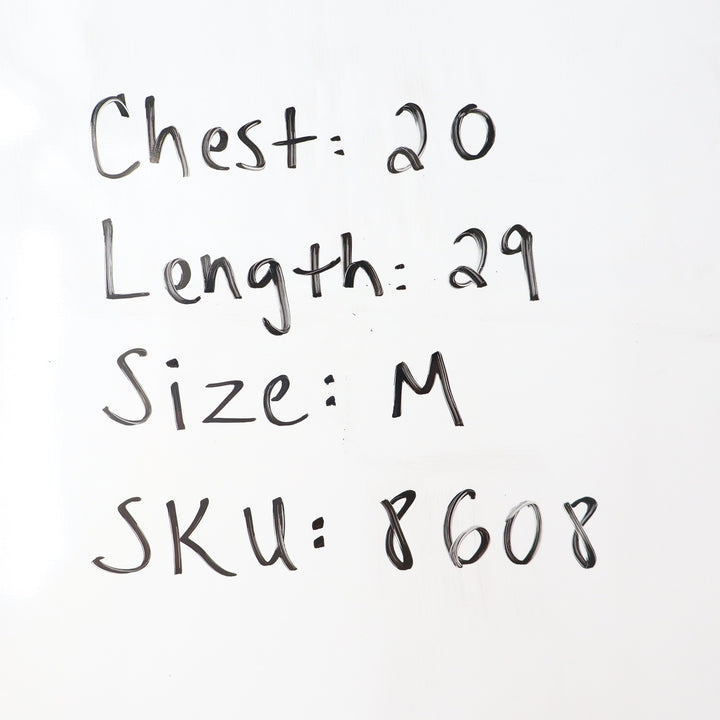 Chest: 20
Length: 29
Size: M
SKU: 8608